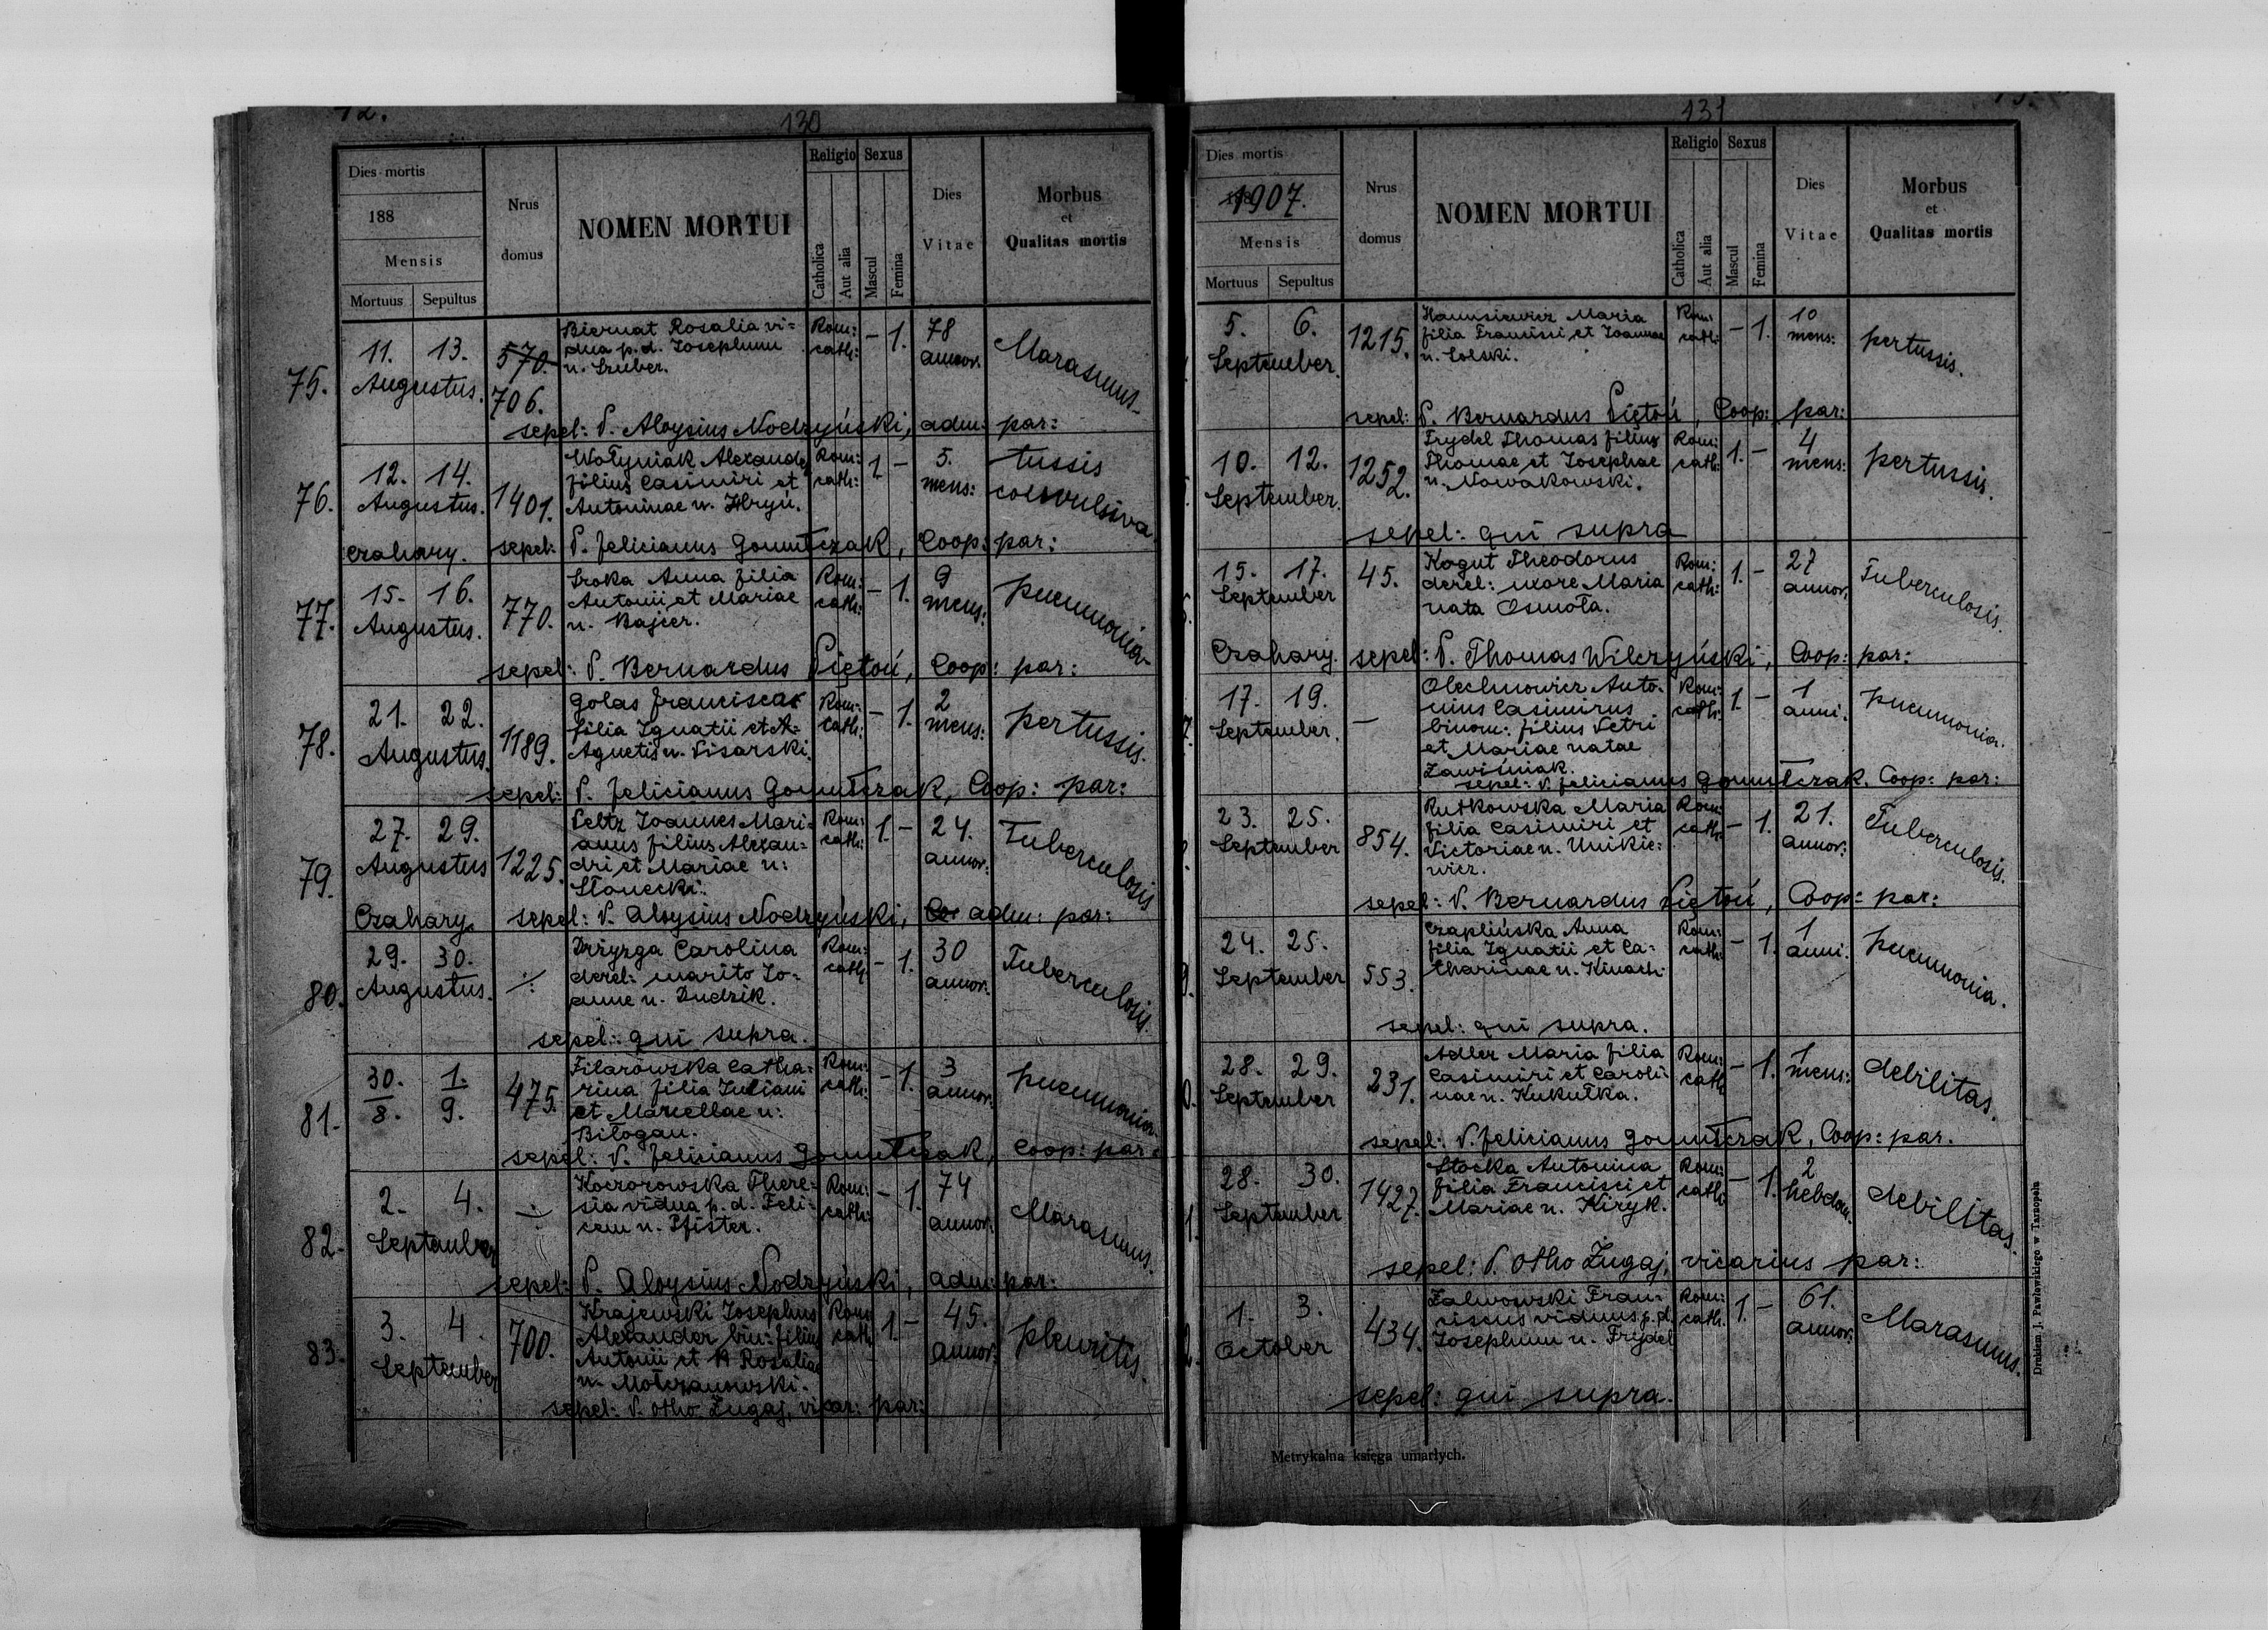 130
Dies mortis
188
Mensis
Mortuus Sepultus
Nrus domus
NOMEN MORTUI
Religio
Catholica
Aut alia
Sexus
Mascul
Femina
Dies Vitae
Morbus
et
Qualitas mortis
75.
11. 13.
Augustus.
570.
706.
Biernat Rosalia vi=
dua p.d. Josephum
n. Szuber.
Rom:
cath:
– 1.
78
annor.
Marasmus.
sepel: P. Aloysius Nodzyński, adm: par:
76.
12. 14.
Augustus.
Czahary.
1401.
Wołyniak Alexander
filius Casimiri et
Antoninae n. Hryń.
Rom:
cath:
1 –
5.
mens:
tussis
convulsiva
sepel: P. Felicianus Gomułczak, Coop: par:
77.
15. 16.
Augustus.
770.
Sroka Anna filia
Antonii et Mariae
n. Bajcer.
Rom:
cath:
– 1.
9
mens:
pneumonia
sepel: P. Bernardus Piętoń, Coop: par:
78.
21. 22.
Augustus.
1189.
Golas Francisca
filia Ignatii et A-
Agnetis n. Pisarski.
Rom:
cath:
– 1.
2
mens:
pertussis.
sepel: P. Felicianus Gomułczak, Coop: par:
79.
27. 29.
Augustus
Czahary.
1225.
Peltz Joannes Mari-
anus filius Alexan=
dri et Mariae n:
Słonecki.
Rom:
cath:
1. –
24.
annor:
Tuberculosis
sepel: P. Aloysius Nodzyński, adm: par:
80.
29. 30.
Augustus.
Drzyzga Carolina
derel: marito Jo-
anne n. Dudzik.
Rom:
cath:
– 1.
30
annor.
Tuberculosis.
sepel: qui supra.
81.
30. 1.
8. 9.
475.
Filarowska Catha-
rina filia Juliani
et Marcellae n:
Biłogan.
Rom:
cath:
– 1.
3
annor.
pneumonia.
sepel: P. Felicianus Gomułczak, Coop: par:
82.
2. 4.
September
Koczorowska There-
sia vidua p.d. Feli-
cem n. Pfister.
Rom:
cath:
– 1.
74
annor.
Marasmus.
sepel: P. Aloysius Nodzyński, adm: par:
83.
3. 4.
September
700.
Krajewski Josephus
Alexander bin: filius
Antonii et Rosaliae
n. Molczanowski.
Rom
cath
1. –
45.
annor.
pleuritis.
sepel: P. Otho Żugaj, vicar: par:
131
Dies mortis
1907.
Mensis
Mortuus Sepultus
Nrus domus
NOMEN MORTUI
Religio
Catholica
Aut alia
Sexus
Mascul
Femina
Dies Vitae
Morbus
et
Qualitas mortis
5. 6.
September.
1215.
Hanusiewicz Maria
filia Francisci et Joannae
n. Solski.
Rom:
cath:
– 1.
10
mens:
pertussis.
sepel: P. Bernardus Piętoń, Coop: par:
10. 12.
September.
1252.
Frydel Thomas filius
Thomae et Josephae
n. Nowakowski.
Rom:
cath:
1. –
4
mens:
pertussis.
sepel: qui supra
15. 17.
September
Czahary.
45.
Kogut Theodorus
derel: uxore Maria
nata Osmoła.
Rom:
cath:
1. –
27
annor.
Tuberculosis.
sepel: P. Thomas Wilczyński, Coop: par:
17. 19.
September.
–
Olechnowicz Anto-
nius Casimirus
binom: filius Petri
et Mariae natae
Zawiśniak.
Rom:
cath:
1. –
1
anni.
pneumonia.
sepel: P. Felicianus Gomułczak, Coop: par:
23. 25.
September
854.
Rutkowska Maria
filia Casimiri et
Victoriae n. Unikie-
wicz.
Rom:
cath:
– 1.
21.
annor:
Tuberculosis.
sepel: P. Bernardus Piętoń, Coop: par:
24. 25.
September
553.
Czaplińska Anna
filia Ignatii et Ca-
tharinae n. Kinach.
Rom:
cath:
– 1.
1
anni.
pneumonia.
sepel: qui supra.
28. 29.
September
231.
Adler Maria filia
Casimiri et Caroli-
nae n. Kukułka.
Rom:
cath
– 1.
1
mens:
debilitas.
sepel: P. Felicianus Gomułczak, Coop: par.
28. 30.
September
1427.
Stocka Antonina
filia Francisci et
Mariae n. Kiryk.
Rom:
cath:
– 1.
2
hebdom.
debilitas.
sepel: P. Otho Żugaj, vicarius par:
1. 3.
October
434.
Zalwowski Fran-
ciscus viduus p.d.
Josephum n. Frydel
Rom:
cath.
1. –
61.
annor:
Marasmus.
sepel: qui supra.
Metrykalna księga umarłych.
Drukiem J. Pawłowskiego w Tarnopolu